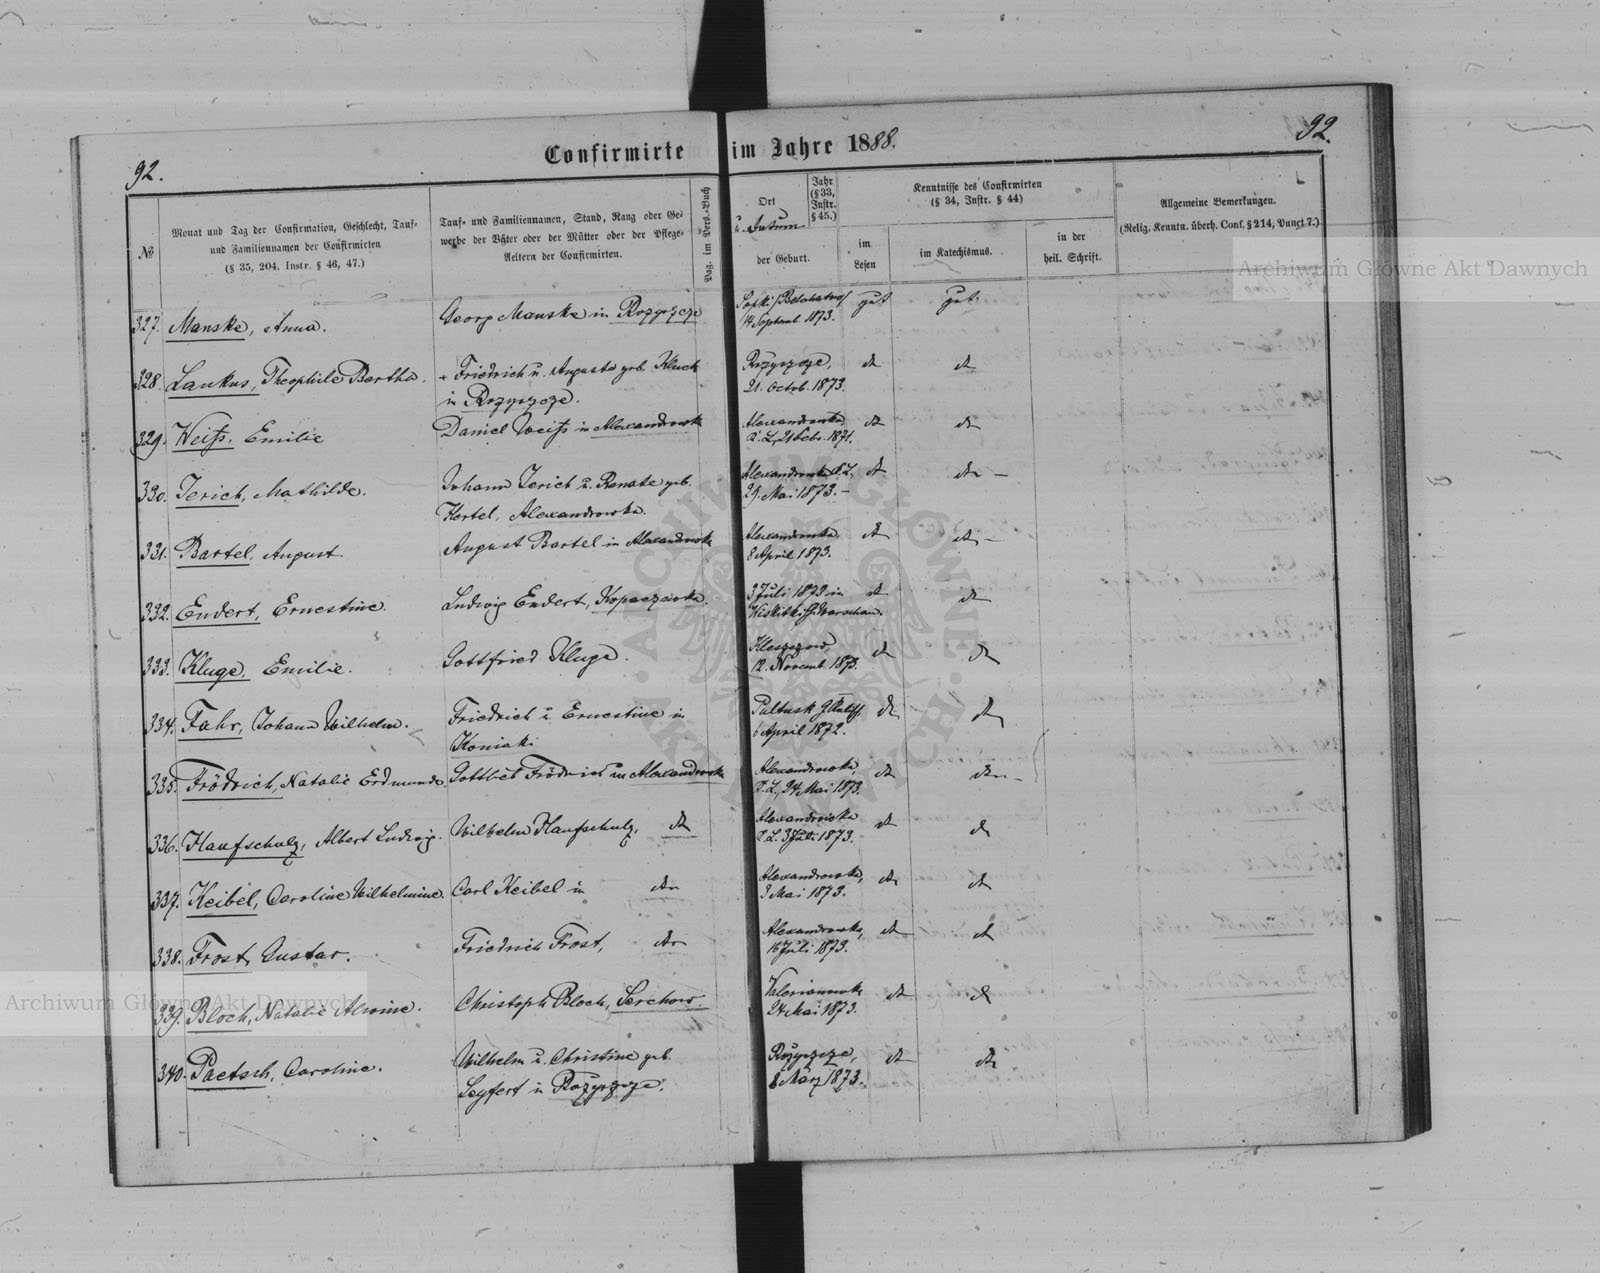 92.
92.
Confirmirte im Jahre 1888.
№
Monat und Tag der Confirmation, Geschlecht, Tauf-
und Familiennamen der Confirmirten
(§ 35, 204. Instr. § 46, 47.)
Tauf- und Familiennamen, Stand, Rang oder Ge-
werbe der Väter oder der Mütter oder der Pflege-
Aeltern der Confirmirten.
Pag. im Pers.-Buch
Ort
u. Datum
der Geburt.
Jahr
(§ 33,
Instr.
§ 45.)
Kenntnisse des Confirmirten
(§ 34, Instr. § 44)
im
Lesen
im Katechismus.
in der
heil. Schrift.
Allgemeine Bemerkungen.
(Relig. Kenntn. überh. Conf. § 214, Punct 7.)
327. Manske, Anna.
Georg Manske in Rozyszcze
14 Septemb. 1873.
gut
gut.
328. Lankus, Theophile Bertha.
+ Friedrich u. Auguste geb. Kluck
in Rozyszcze.
Rozyszcze,
21. Octob. 1873.
do
do
329. Weiß, Emilie
Daniel Weiß in Alexandrowka
Alexandrowka,
P. L., 21 Febr. 1871.
do
do
330. Jerich, Mathilde.
Johann Jerich u. Renate geb.
Hertel, Alexandrowka.
Alexandrowka P. L.,
29. Mai 1873. –
do
do –
331. Bartel, August.
August Bartel in Alexandrowka
Alexandrowka,
8 April 1873.
do
do –
332. Endert, Ernestine.
Ludwig Endert, Kopaczowka.
3 Juli 1873 in
Wiskitki G. Warschau.
do
do
333. Kluge, Emilie.
Gottfried Kluge.
Kleszczow,
12. Novemb. 1873.
do
do
334. Fahr, Johann Wilhelm.
Friedrich u. Ernestine in
Koniaki
Pultusk
6 April 1872.
do
do
335. Frödrich, Natalie Erdmunde.
Gottlieb Frödrich in Alexandrowka
Alexandrowka,
P. L., 24 Mai 1873.
do
do –
336. Haufschulz, Albert Ludwig.
Wilhelm Haufschulz, do
Alexandrowka
P. L. 3 Juli 1873.
do
do
337. Keibel, Caroline Wilhelmine.
Carl Keibel in do
Alexandrowka,
3 Mai 1873.
do
do
338. Frost, Gustav.
Friedrich Frost, do
Alexandrowka,
16 Juli 1873.
do
do
339. Bloch, Natalie Alwine.
Christoph Bloch, Serchow.
Valerianowka
24 Mai 1873.
do
do
340. Paetsch, Caroline.
Wilhelm u. Christine geb.
Seyfert in Rozyszcze.
Rozyszcze,
8 März 1873.
do
do
Archiwum Główne Akt Dawnych
Archiwum Główne Akt Dawnych
ARCHIWUM GŁÓWNE AKT DAWNYCH